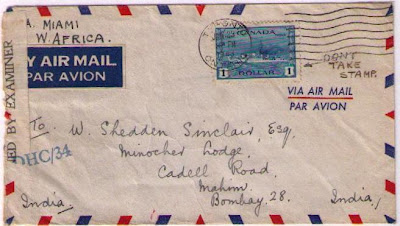 A. MIAMI
W. AFRICA.
BY AIR MAIL
PAR AVION
CANADA
1 DOLLAR 1
DON'T
TAKE
STAMP.
VIA AIR MAIL
PAR AVION
ED BY EXAMINER
DHC/34
To. W. Shedden Sinclair, Esq.
Minocher Lodge,
Cadell Road,
Mahim
Bombay. 28.
India.
India.